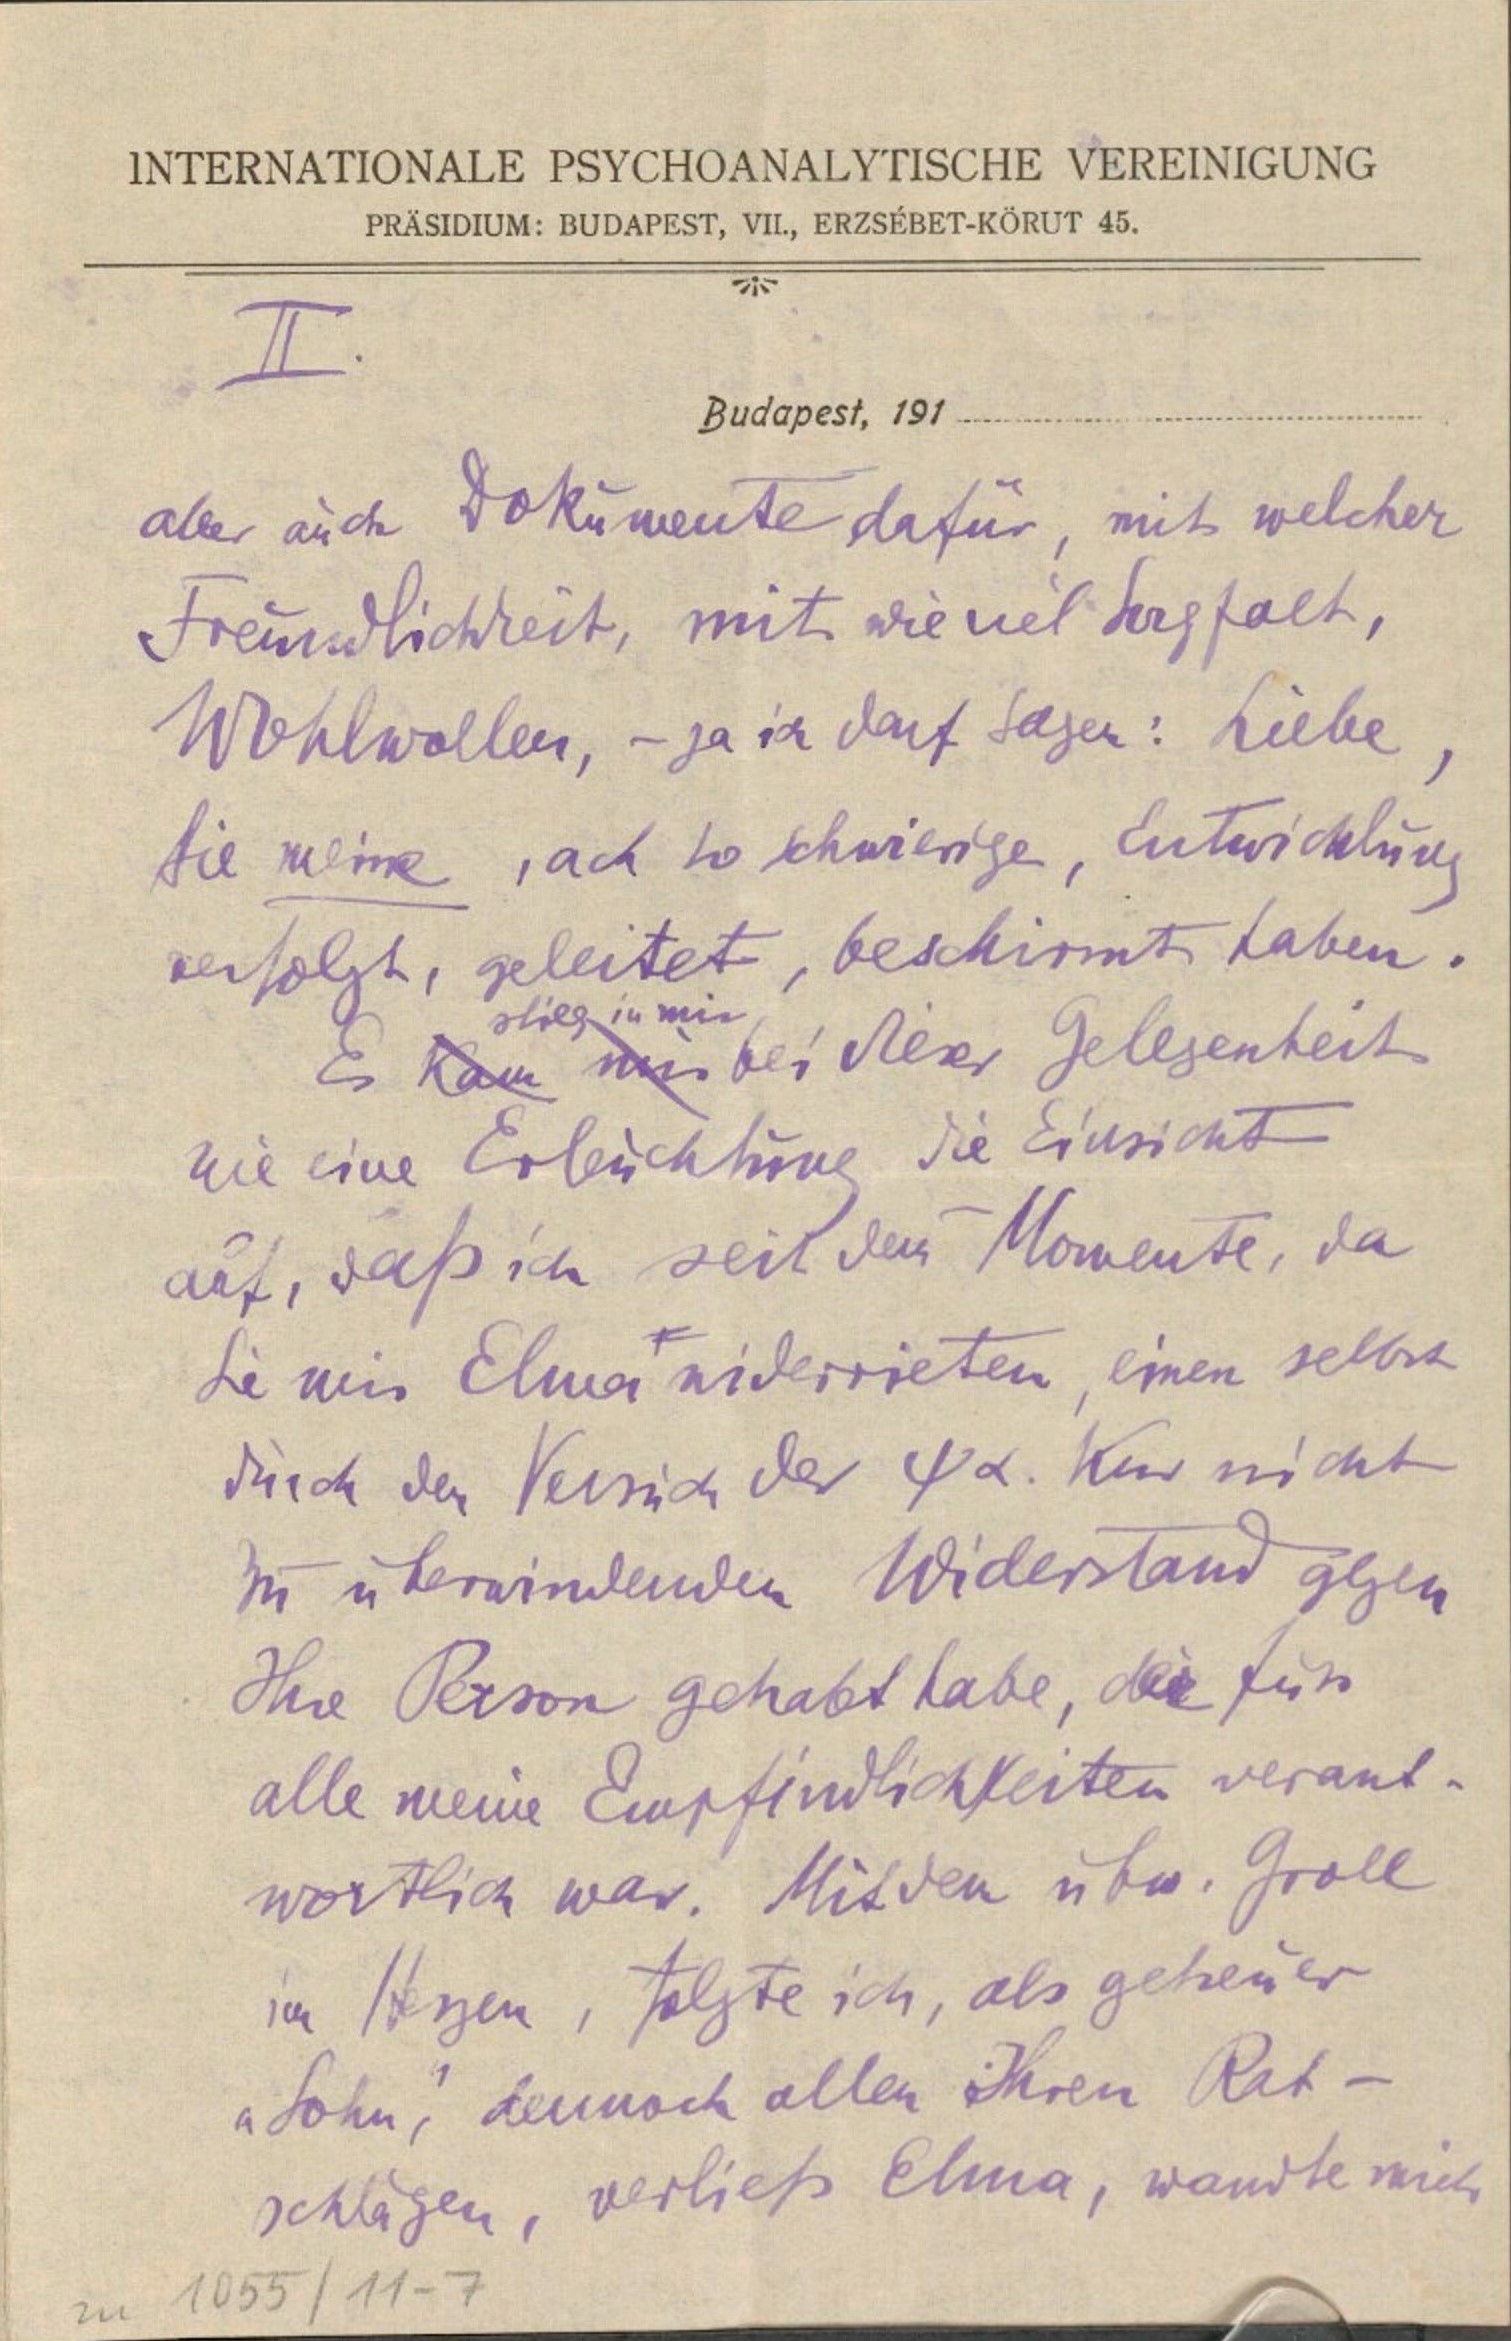 INTERNATIONALE PSYCHOANALYTISCHE VEREINIGUNG
PRÄSIDIUM: BUDAPEST, VII., ERZSÉBET-KÖRUT 45.
II.
Budapest, 191
aber auch Dokumente dafür, mit welcher
Freundlichkeit, mit wieviel Sorgfalt,
Wohlwollen, – ja ich darf sagen: Liebe,
Sie meine, ach so schwierige, Entwicklung
verfolgt, geleitet, beschirmt haben.
stieg in mir
Es kam mir bei dieser Gelegenheit
wie eine Erleuchtung die Einsicht
auf, daß ich seit dem Momente, da
Sie mir Elma widerrieten, einen selbst
durch den Versuch der ψα. Kur nicht
zu überwindenden Widerstand gegen
Ihre Person gehabt habe, der für
alle meine Empfindlichkeiten verant-
wortlich war. Mit dem ubw. Groll
im Herzen, folgte ich, als getreuer
„Sohn“, dennoch allen Ihren Rat-
schlägen, verließ Elma, wandte mich
zu 1055/11-7